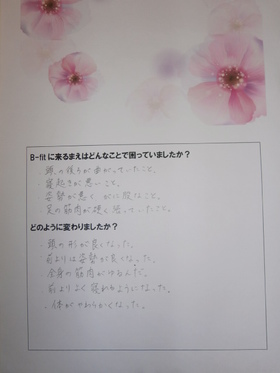 B-fitに来るまえはどんなことで困っていましたか？
・頭の後ろが曲がっていたこと。
・寝起きが悪いこと。
・姿勢が悪く、がに股なこと。
・足の筋肉が硬く張っていたこと。
どのように変わりましたか？
・頭の形が良くなった。
・前よりは姿勢が良くなった。
・全身の筋肉がゆるんだ。
・前よりよく寝れるようになった。
・体がやわらかくなった。